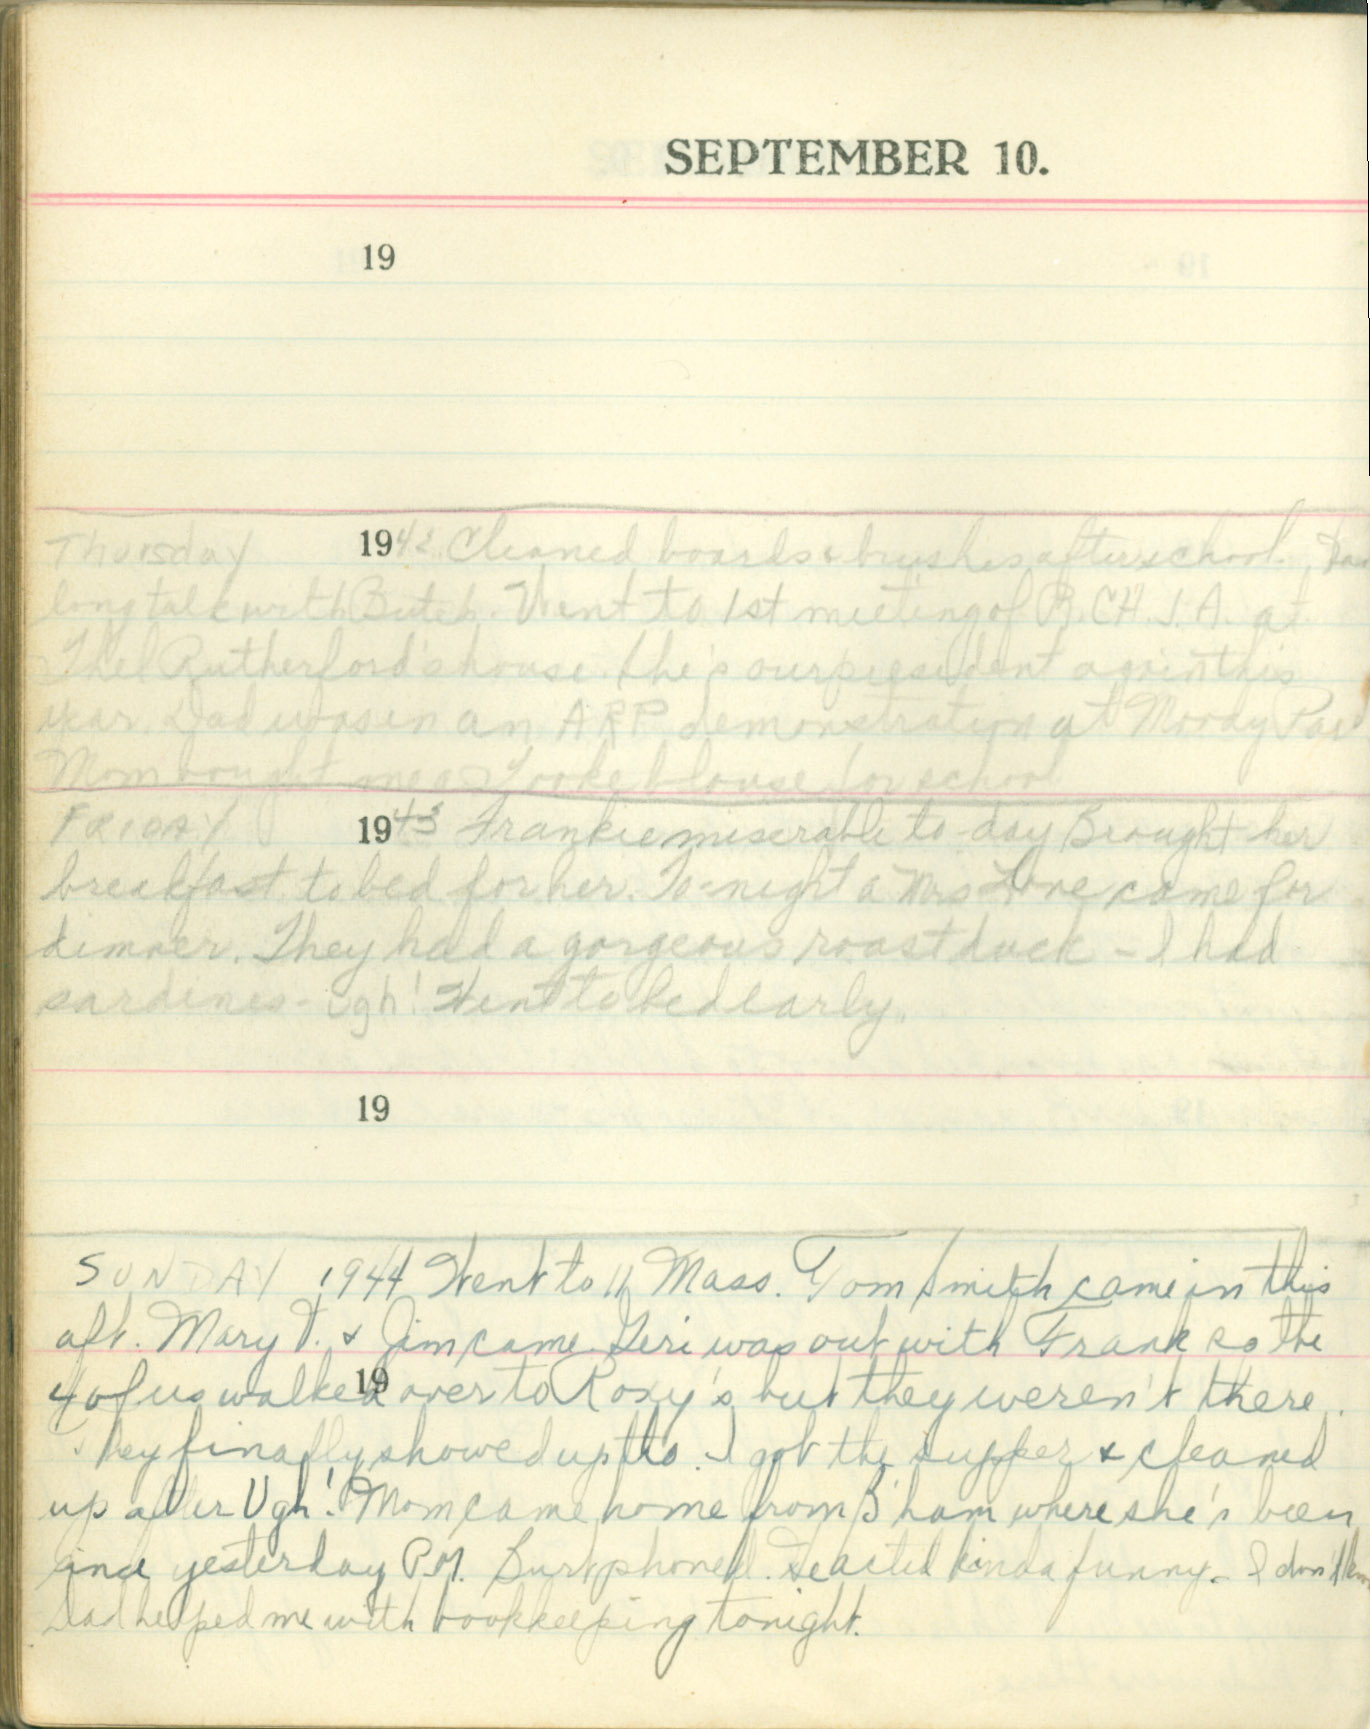 SEPTEMBER 10.
19
Thursday 1942 Cleaned boards & brushes after school. Had
long talk with Butch. Went to 1st meeting of B.C.H.J.A. at
Thel Rutherford's house. She's our president again this
year. Dad was in an ARP demonstration at Moody Park
Mom bought me a Tooke blouse for school
FRIDAY 1943 Frankie miserable to-day Brought her
breakfast to bed for her. To-night a Mrs Love came for
dinner. They had a gorgeous roast duck - I had
sardines - Ugh! Went to bed early.
19
SUNDAY 1944 Went to 11 Mass. Tom Smith came in this
aft. Mary T. & Jim came. Geri was out with Frank so the
19
4 of us walked over to Roxy's but they weren't there.
They finally showed up tho. I got the supper & cleaned
up after Ugh! Mom came home from B'ham where she's been
since yesterday P.M. Burt phoned. He acted kinda funny - I don't know
Dad helped me with bookkeeping tonight.